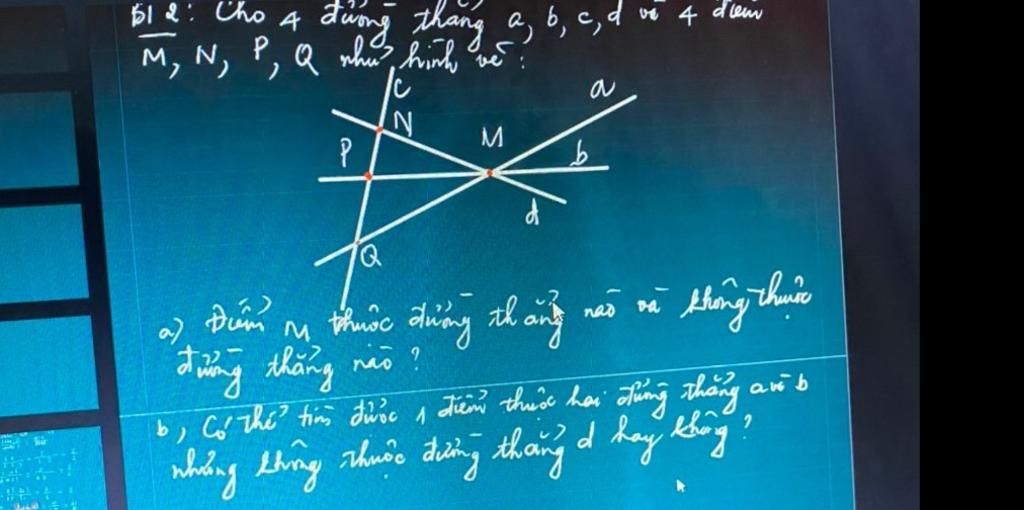 Bài 2: Cho 4 đường thẳng a, b, c, d và 4 điểm
M, N, P, Q như hình vẽ:
c
a
N
M
P
b
d
Q
a) Điểm M thuộc đường thẳng nào và không thuộc
đường thẳng nào?
b, Có thể tìm được 1 điểm thuộc hai đường thẳng a và b
nhưng không thuộc đường thẳng d hay không?